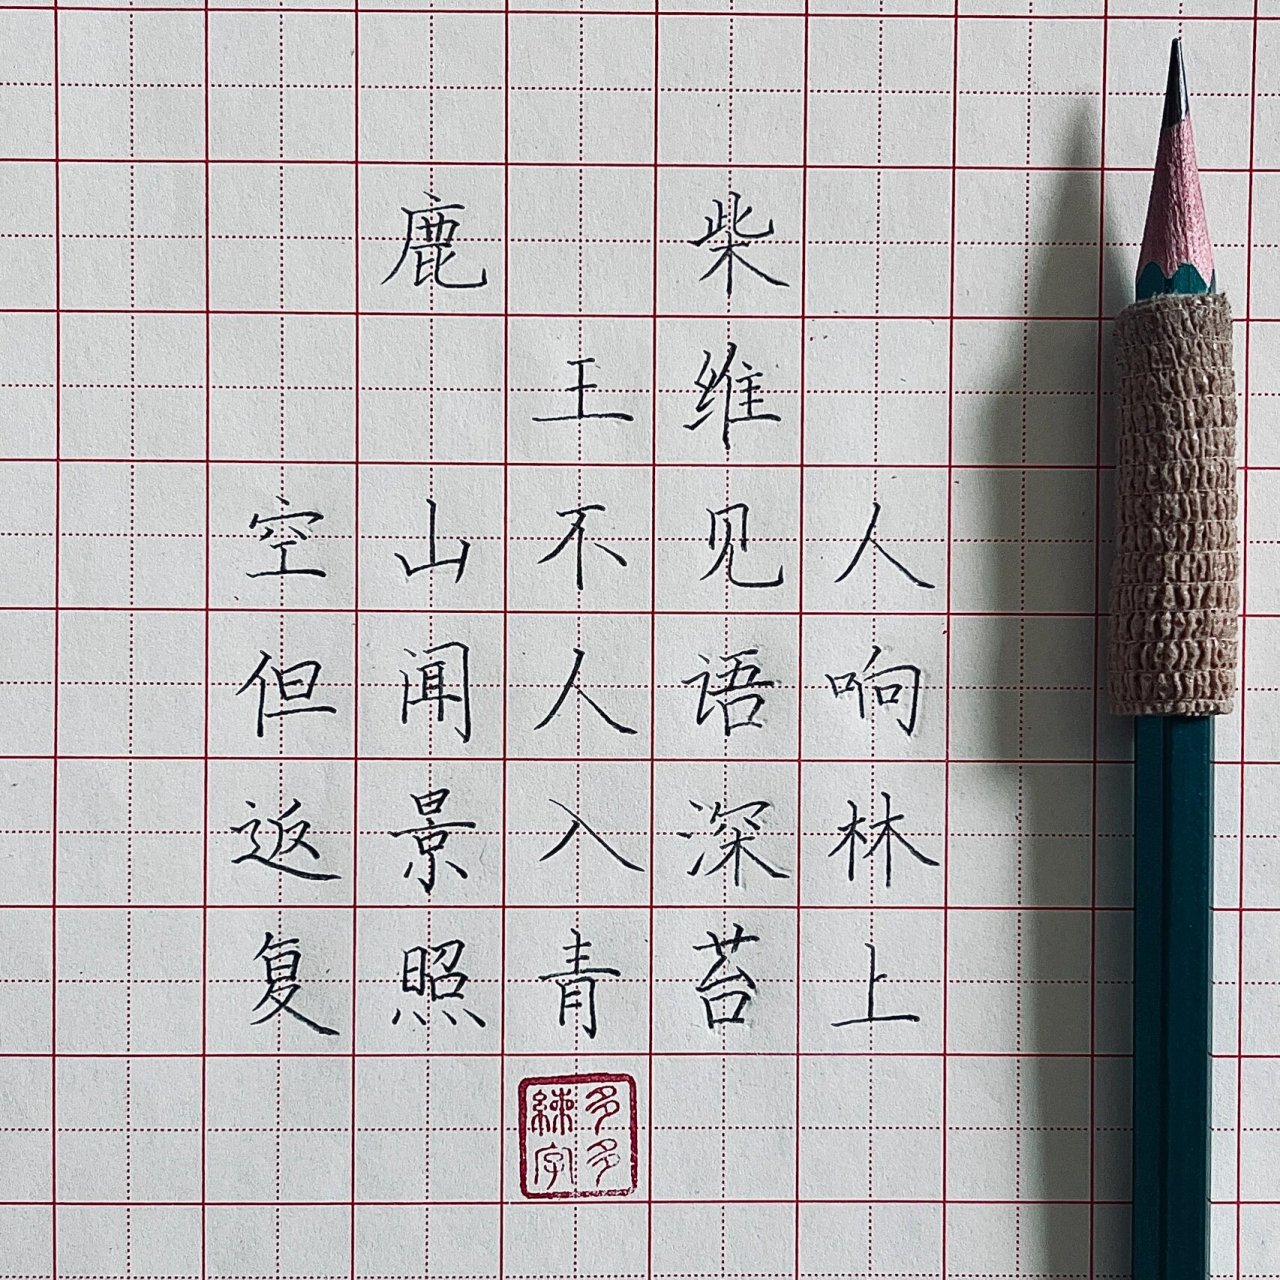 鹿柴
王维
空山不见人
但闻人语响
返景入深林
复照青苔上
多多練字